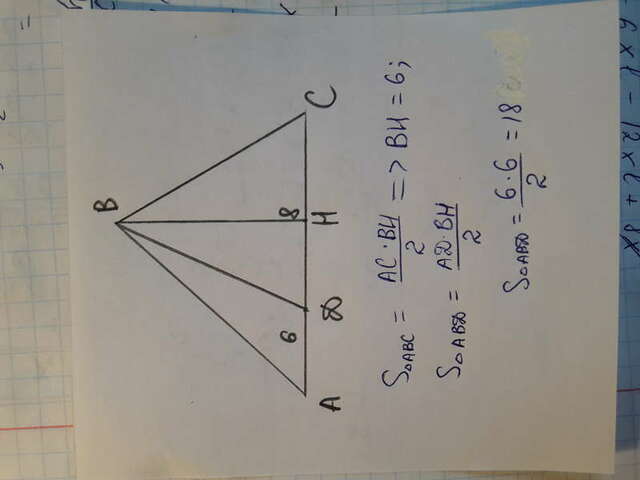 B
6
8
A
D
H
C
S△ABC = AC · BH / 2 => BH = 6;
S△ABD = AD · BH / 2
S△ABD = 6 · 6 / 2 = 18